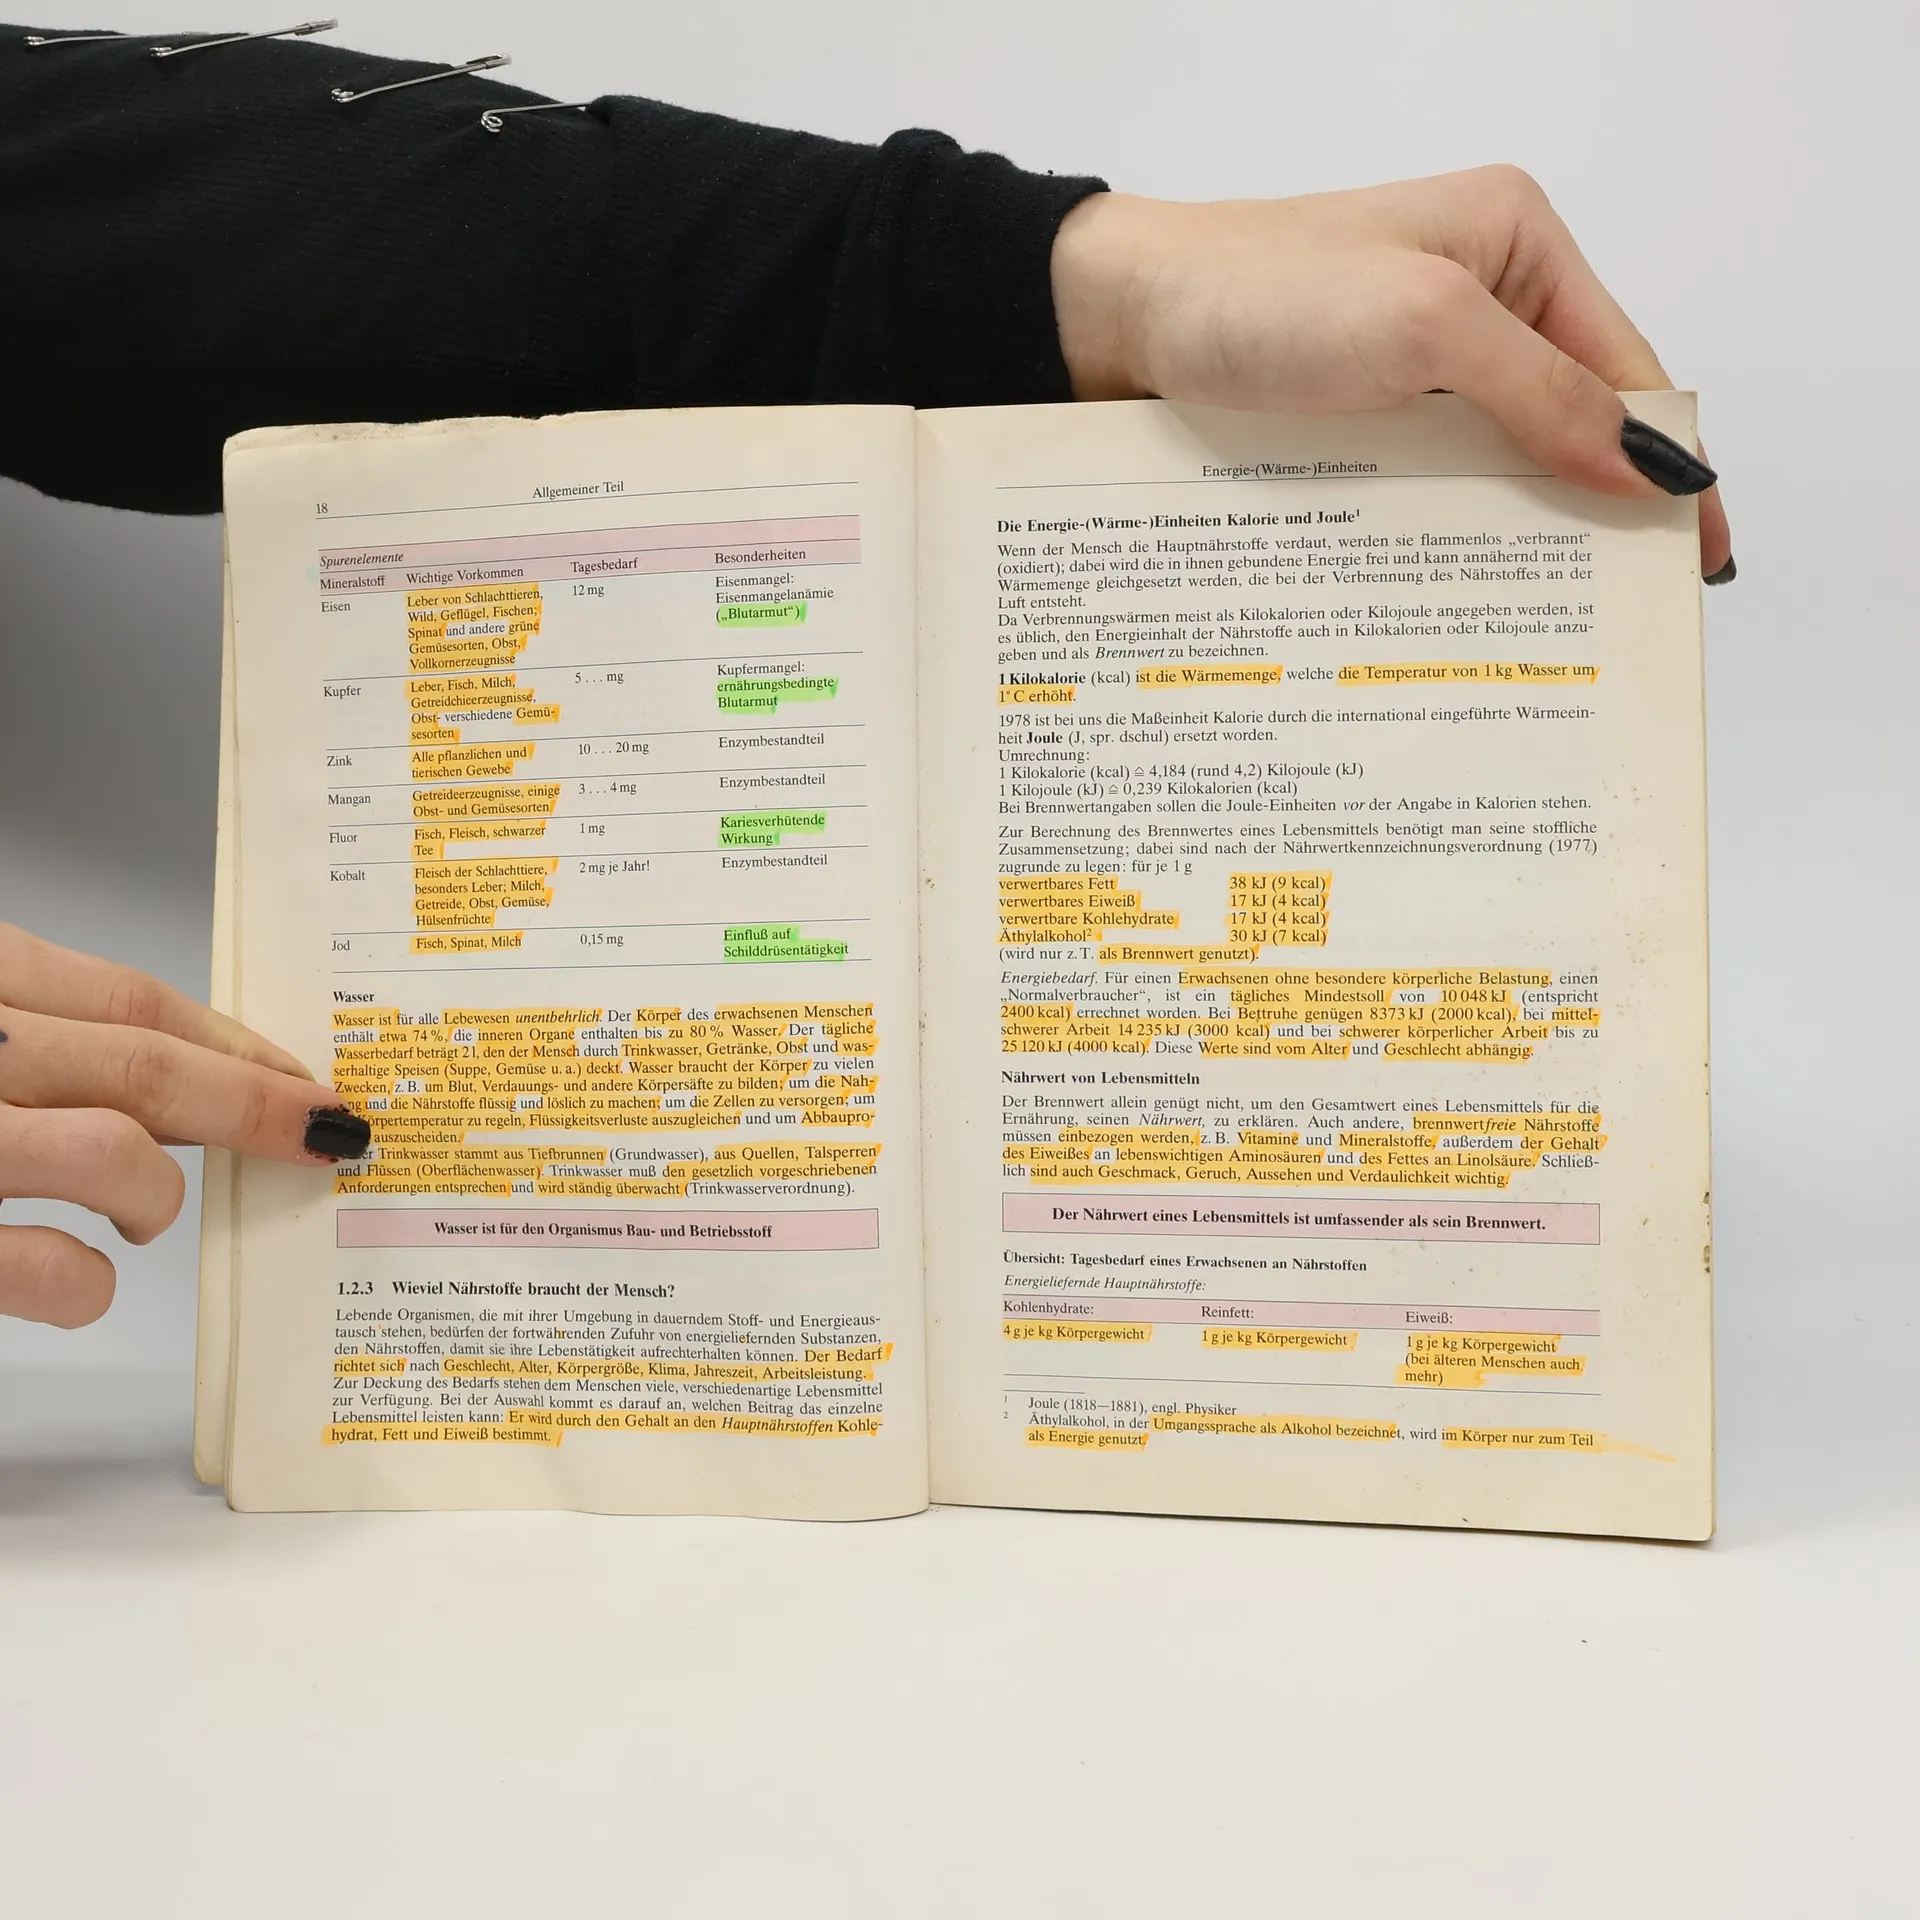 18
Allgemeiner Teil
Spurenelemente
Mineralstoff Wichtige Vorkommen Tagesbedarf Besonderheiten
Eisen Leber von Schlachttieren, 12 mg Eisenmangel:
Wild, Geflügel, Fischen; Eisenmangelanämie
Spinat und andere grüne („Blutarmut“)
Gemüsesorten, Obst,
Vollkornerzeugnisse
Kupfer Leber, Fisch, Milch, 5 . . . mg Kupfermangel:
Getreidchieerzeugnisse, ernährungsbedingte
Obst- verschiedene Gemü- Blutarmut
sesorten
Zink Alle pflanzlichen und 10 . . . 20 mg Enzymbestandteil
tierischen Gewebe
Mangan Getreideerzeugnisse, einige 3 . . . 4 mg Enzymbestandteil
Obst- und Gemüsesorten
Fluor Fisch, Fleisch, schwarzer 1 mg Kariesverhütende
Tee Wirkung
Kobalt Fleisch der Schlachttiere, 2 mg je Jahr! Enzymbestandteil
besonders Leber; Milch,
Getreide, Obst, Gemüse,
Hülsenfrüchte
Jod Fisch, Spinat, Milch 0,15 mg Einfluß auf
Schilddrüsentätigkeit
Wasser
Wasser ist für alle Lebewesen unentbehrlich. Der Körper des erwachsenen Menschen
enthält etwa 74 %, die inneren Organe enthalten bis zu 80 % Wasser. Der tägliche
Wasserbedarf beträgt 2 l, den der Mensch durch Trinkwasser, Getränke, Obst und was-
serhaltige Speisen (Suppe, Gemüse u. a.) deckt. Wasser braucht der Körper zu vielen
Zwecken, z. B. um Blut, Verdauungs- und andere Körpersäfte zu bilden; um die Nah-
ng und die Nährstoffe flüssig und löslich zu machen; um die Zellen zu versorgen; um
örpertemperatur zu regeln, Flüssigkeitsverluste auszugleichen und um Abbaupro-
auszuscheiden.
er Trinkwasser stammt aus Tiefbrunnen (Grundwasser), aus Quellen, Talsperren
und Flüssen (Oberflächenwasser). Trinkwasser muß den gesetzlich vorgeschriebenen
Anforderungen entsprechen und wird ständig überwacht (Trinkwasserverordnung).
Wasser ist für den Organismus Bau- und Betriebsstoff
1.2.3 Wieviel Nährstoffe braucht der Mensch?
Lebende Organismen, die mit ihrer Umgebung in dauerndem Stoff- und Energieaus-
tausch stehen, bedürfen der fortwährenden Zufuhr von energieliefernden Substanzen,
den Nährstoffen, damit sie ihre Lebenstätigkeit aufrechterhalten können. Der Bedarf
richtet sich nach Geschlecht, Alter, Körpergröße, Klima, Jahreszeit, Arbeitsleistung.
Zur Deckung des Bedarfs stehen dem Menschen viele, verschiedenartige Lebensmittel
zur Verfügung. Bei der Auswahl kommt es darauf an, welchen Beitrag das einzelne
Lebensmittel leisten kann: Er wird durch den Gehalt an den Hauptnährstoffen Kohle-
hydrat, Fett und Eiweiß bestimmt.
Energie-(Wärme-)Einheiten
Die Energie-(Wärme-)Einheiten Kalorie und Joule¹
Wenn der Mensch die Hauptnährstoffe verdaut, werden sie flammenlos „verbrannt“
(oxidiert); dabei wird die in ihnen gebundene Energie frei und kann annähernd mit der
Wärmemenge gleichgesetzt werden, die bei der Verbrennung des Nährstoffes an der
Luft entsteht.
Da Verbrennungswärmen meist als Kilokalorien oder Kilojoule angegeben werden, ist
es üblich, den Energieinhalt der Nährstoffe auch in Kilokalorien oder Kilojoule anzu-
geben und als Brennwert zu bezeichnen.
1 Kilokalorie (kcal) ist die Wärmemenge, welche die Temperatur von 1 kg Wasser um
1° C erhöht.
1978 ist bei uns die Maßeinheit Kalorie durch die international eingeführte Wärmeein-
heit Joule (J, spr. dschul) ersetzt worden.
Umrechnung:
1 Kilokalorie (kcal) ≙ 4,184 (rund 4,2) Kilojoule (kJ)
1 Kilojoule (kJ) ≙ 0,239 Kilokalorien (kcal)
Bei Brennwertangaben sollen die Joule-Einheiten vor der Angabe in Kalorien stehen.
Zur Berechnung des Brennwertes eines Lebensmittels benötigt man seine stoffliche
Zusammensetzung; dabei sind nach der Nährwertkennzeichnungsverordnung (1977)
zugrunde zu legen: für je 1 g
verwertbares Fett 38 kJ (9 kcal)
verwertbares Eiweiß 17 kJ (4 kcal)
verwertbare Kohlehydrate 17 kJ (4 kcal)
Äthylalkohol² 30 kJ (7 kcal)
(wird nur z. T. als Brennwert genutzt).
Energiebedarf. Für einen Erwachsenen ohne besondere körperliche Belastung, einen
„Normalverbraucher“, ist ein tägliches Mindestsoll von 10 048 kJ (entspricht
2400 kcal) errechnet worden. Bei Bettruhe genügen 8373 kJ (2000 kcal), bei mittel-
schwerer Arbeit 14 235 kJ (3000 kcal) und bei schwerer körperlicher Arbeit bis zu
25 120 kJ (4000 kcal). Diese Werte sind vom Alter und Geschlecht abhängig.
Nährwert von Lebensmitteln
Der Brennwert allein genügt nicht, um den Gesamtwert eines Lebensmittels für die
Ernährung, seinen Nährwert, zu erklären. Auch andere, brennwertfreie Nährstoffe
müssen einbezogen werden, z. B. Vitamine und Mineralstoffe, außerdem der Gehalt
des Eiweißes an lebenswichtigen Aminosäuren und des Fettes an Linolsäure. Schließ-
lich sind auch Geschmack, Geruch, Aussehen und Verdaulichkeit wichtig.
Der Nährwert eines Lebensmittels ist umfassender als sein Brennwert.
Übersicht: Tagesbedarf eines Erwachsenen an Nährstoffen
Energieliefernde Hauptnährstoffe:
Kohlenhydrate: Reinfett: Eiweiß:
4 g je kg Körpergewicht 1 g je kg Körpergewicht 1 g je kg Körpergewicht
(bei älteren Menschen auch
mehr)
¹ Joule (1818—1881), engl. Physiker
² Äthylalkohol, in der Umgangssprache als Alkohol bezeichnet, wird im Körper nur zum Teil
als Energie genutzt.